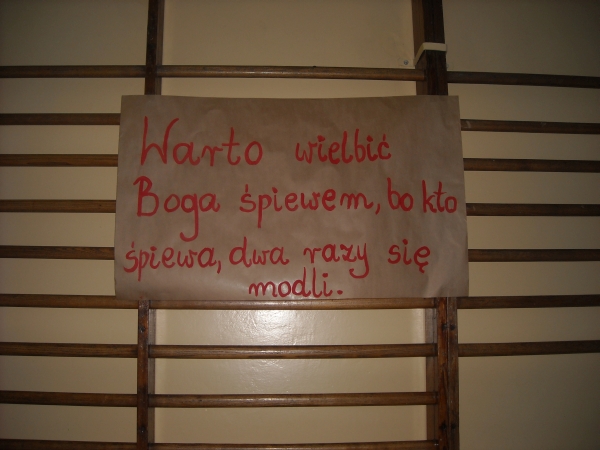 Warto wielbić
Boga śpiewem, bo kto
śpiewa, dwa razy się
modli.